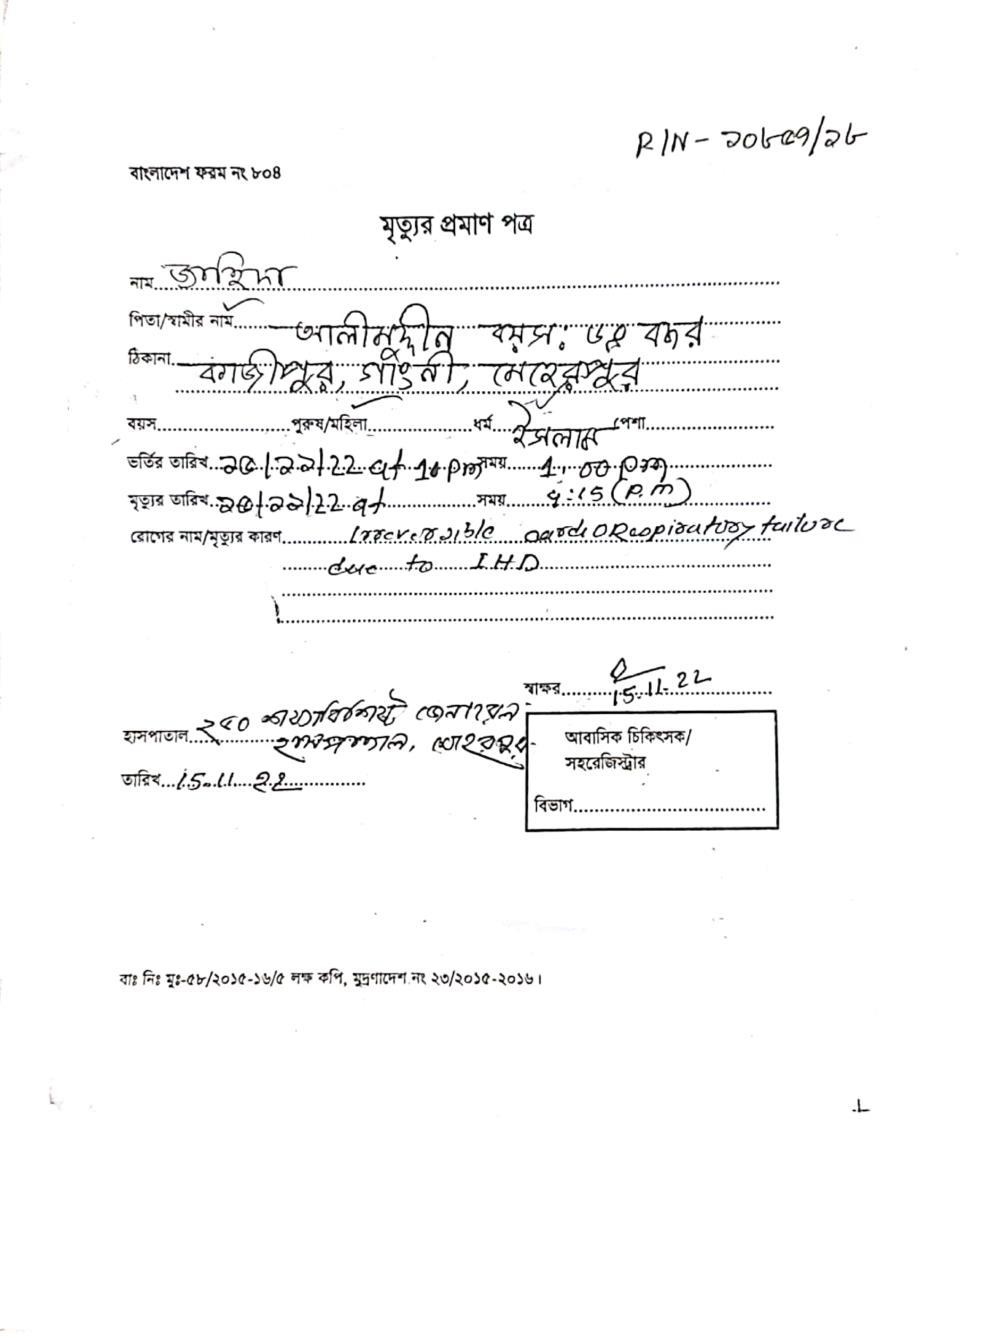 RIN - ১০৮৫৭/২৮
বাংলাদেশ ফরম নং ৮০৪
মৃত্যুর প্রমাণ পত্র
নাম জাহিদা
পিতা/স্বামীর নাম আলীমুদ্দীন বয়স: ৬৫ বছর
ঠিকানা কাজীপুর, গাংনী, মেহেরপুর
বয়স পুরুষ/মহিলা ধর্ম ইসলাম পেশা
ভর্তির তারিখ ১৫/১১/22 at সময় 1:00 pm
মৃত্যুর তারিখ ১৫/১১/22 at সময় :15 (P.m)
রোগের নাম/মৃত্যুর কারণ Irreversible cardiORespiratory failure
due to I.H.D
স্বাক্ষর 15.11.22
হাসপাতাল ২৫০ শয্যাবিশিষ্ট জেনারেল
হাসপাতাল, মেহেরপুর
আবাসিক চিকিৎসক/
সহরেজিস্ট্রার
তারিখ 15.11.22
বিভাগ
বাঃ নিঃ মুঃ-৫৮/২০১৫-১৬/৫ লক্ষ কপি, মুদ্রণাদেশ নং ২৩/২০১৫-২০১৬।